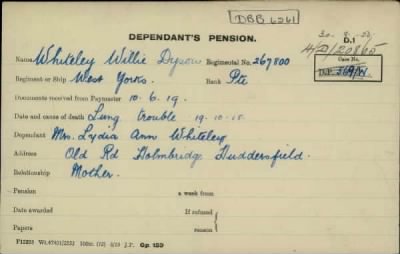 DBB 6261
DEPENDANT'S PENSION.
30.8.52
D.1
4/D/20865
Name Whiteley Willie Dyson Regimental No. 267800
Case No.
Regiment or Ship West Yorks. Rank Pte
D.P. 369/W.
Documents received from Paymaster 10.6.19.
Date and cause of death Lung trouble 19-10-18
Dependant Mrs. Lydia Ann Whiteley
Address Old Rd Holmbridge Huddersfield.
Relationship Mother.
Pension a week from
Date awarded If refused
Papers pension
Gp. 139